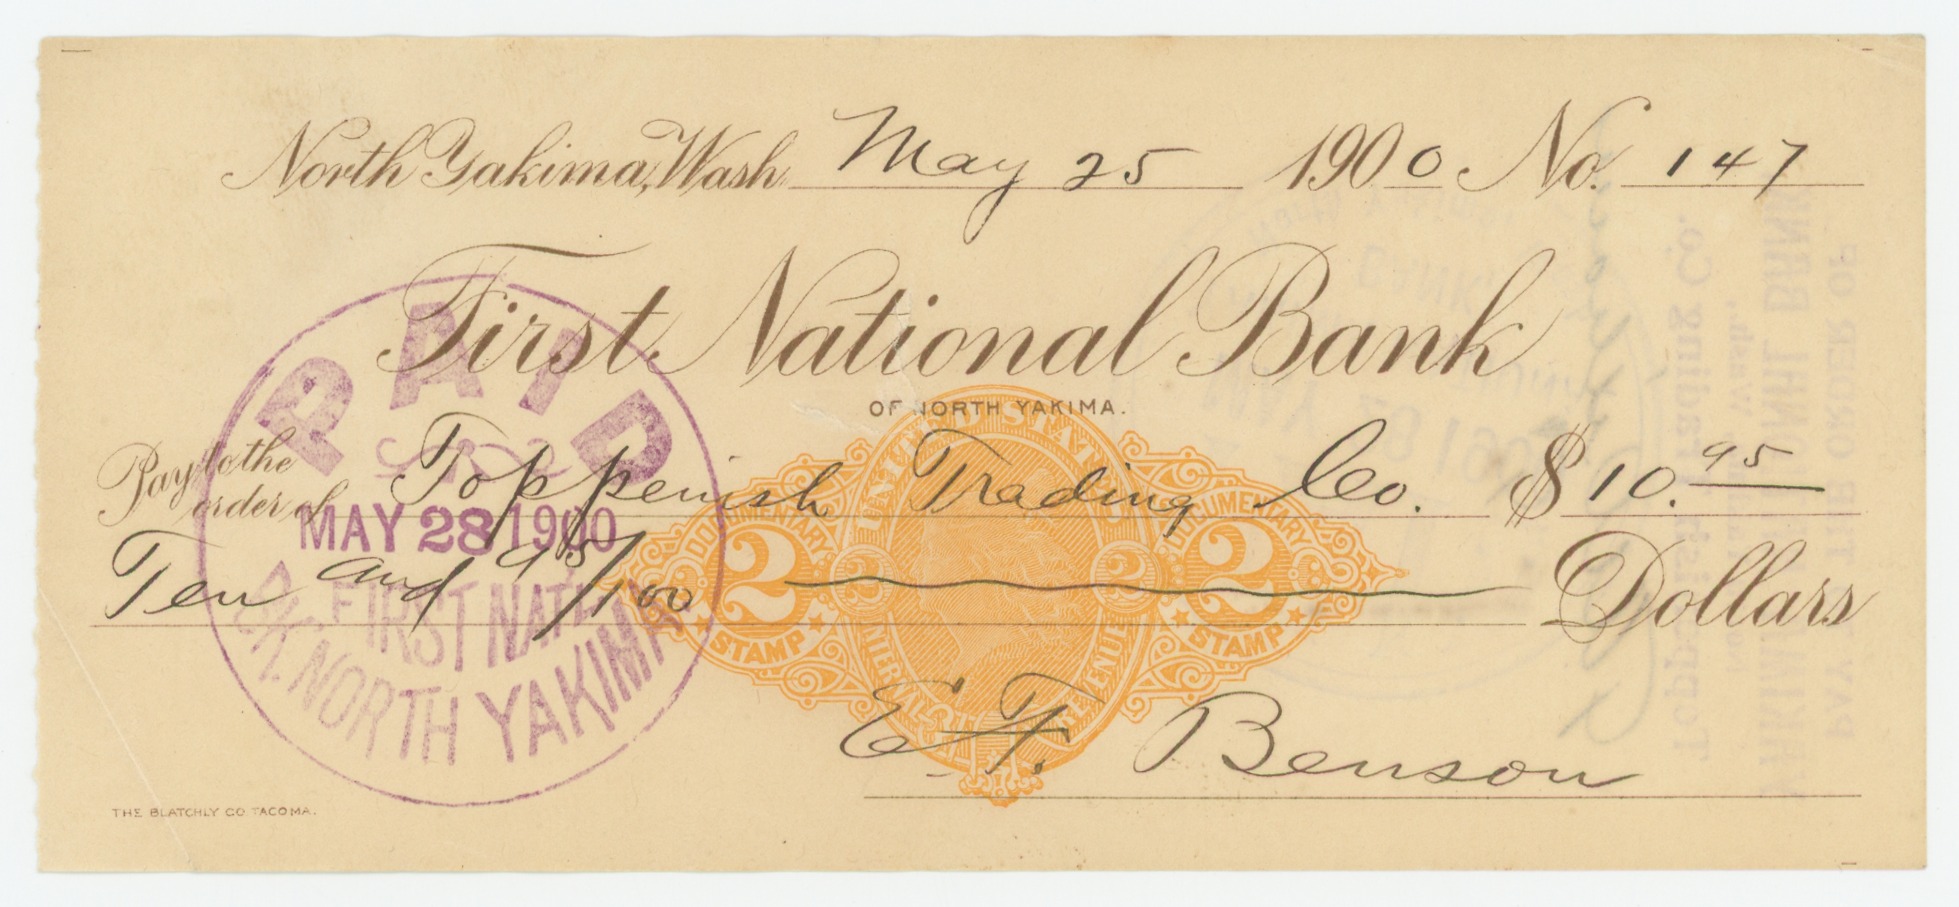 North Yakima, Wash. May 25 1900 No. 147
First National Bank
OF NORTH YAKIMA.
Pay to the order of Toppenish Trading Co. $10.95
Ten and 95/100 Dollars
E. F. Benson
THE BLATCHLY CO. TACOMA.
PAID
MAY 28 1900
FIRST NAT'L
BK. NORTH YAKIMA
UNITED STATES
DOCUMENTARY DOCUMENTARY
2 2 2 2
STAMP STAMP
INTERNAL REVENUE
PAY TO THE ORDER OF
YAKIMA NATIONAL BANK
Toppenish Trading Co.